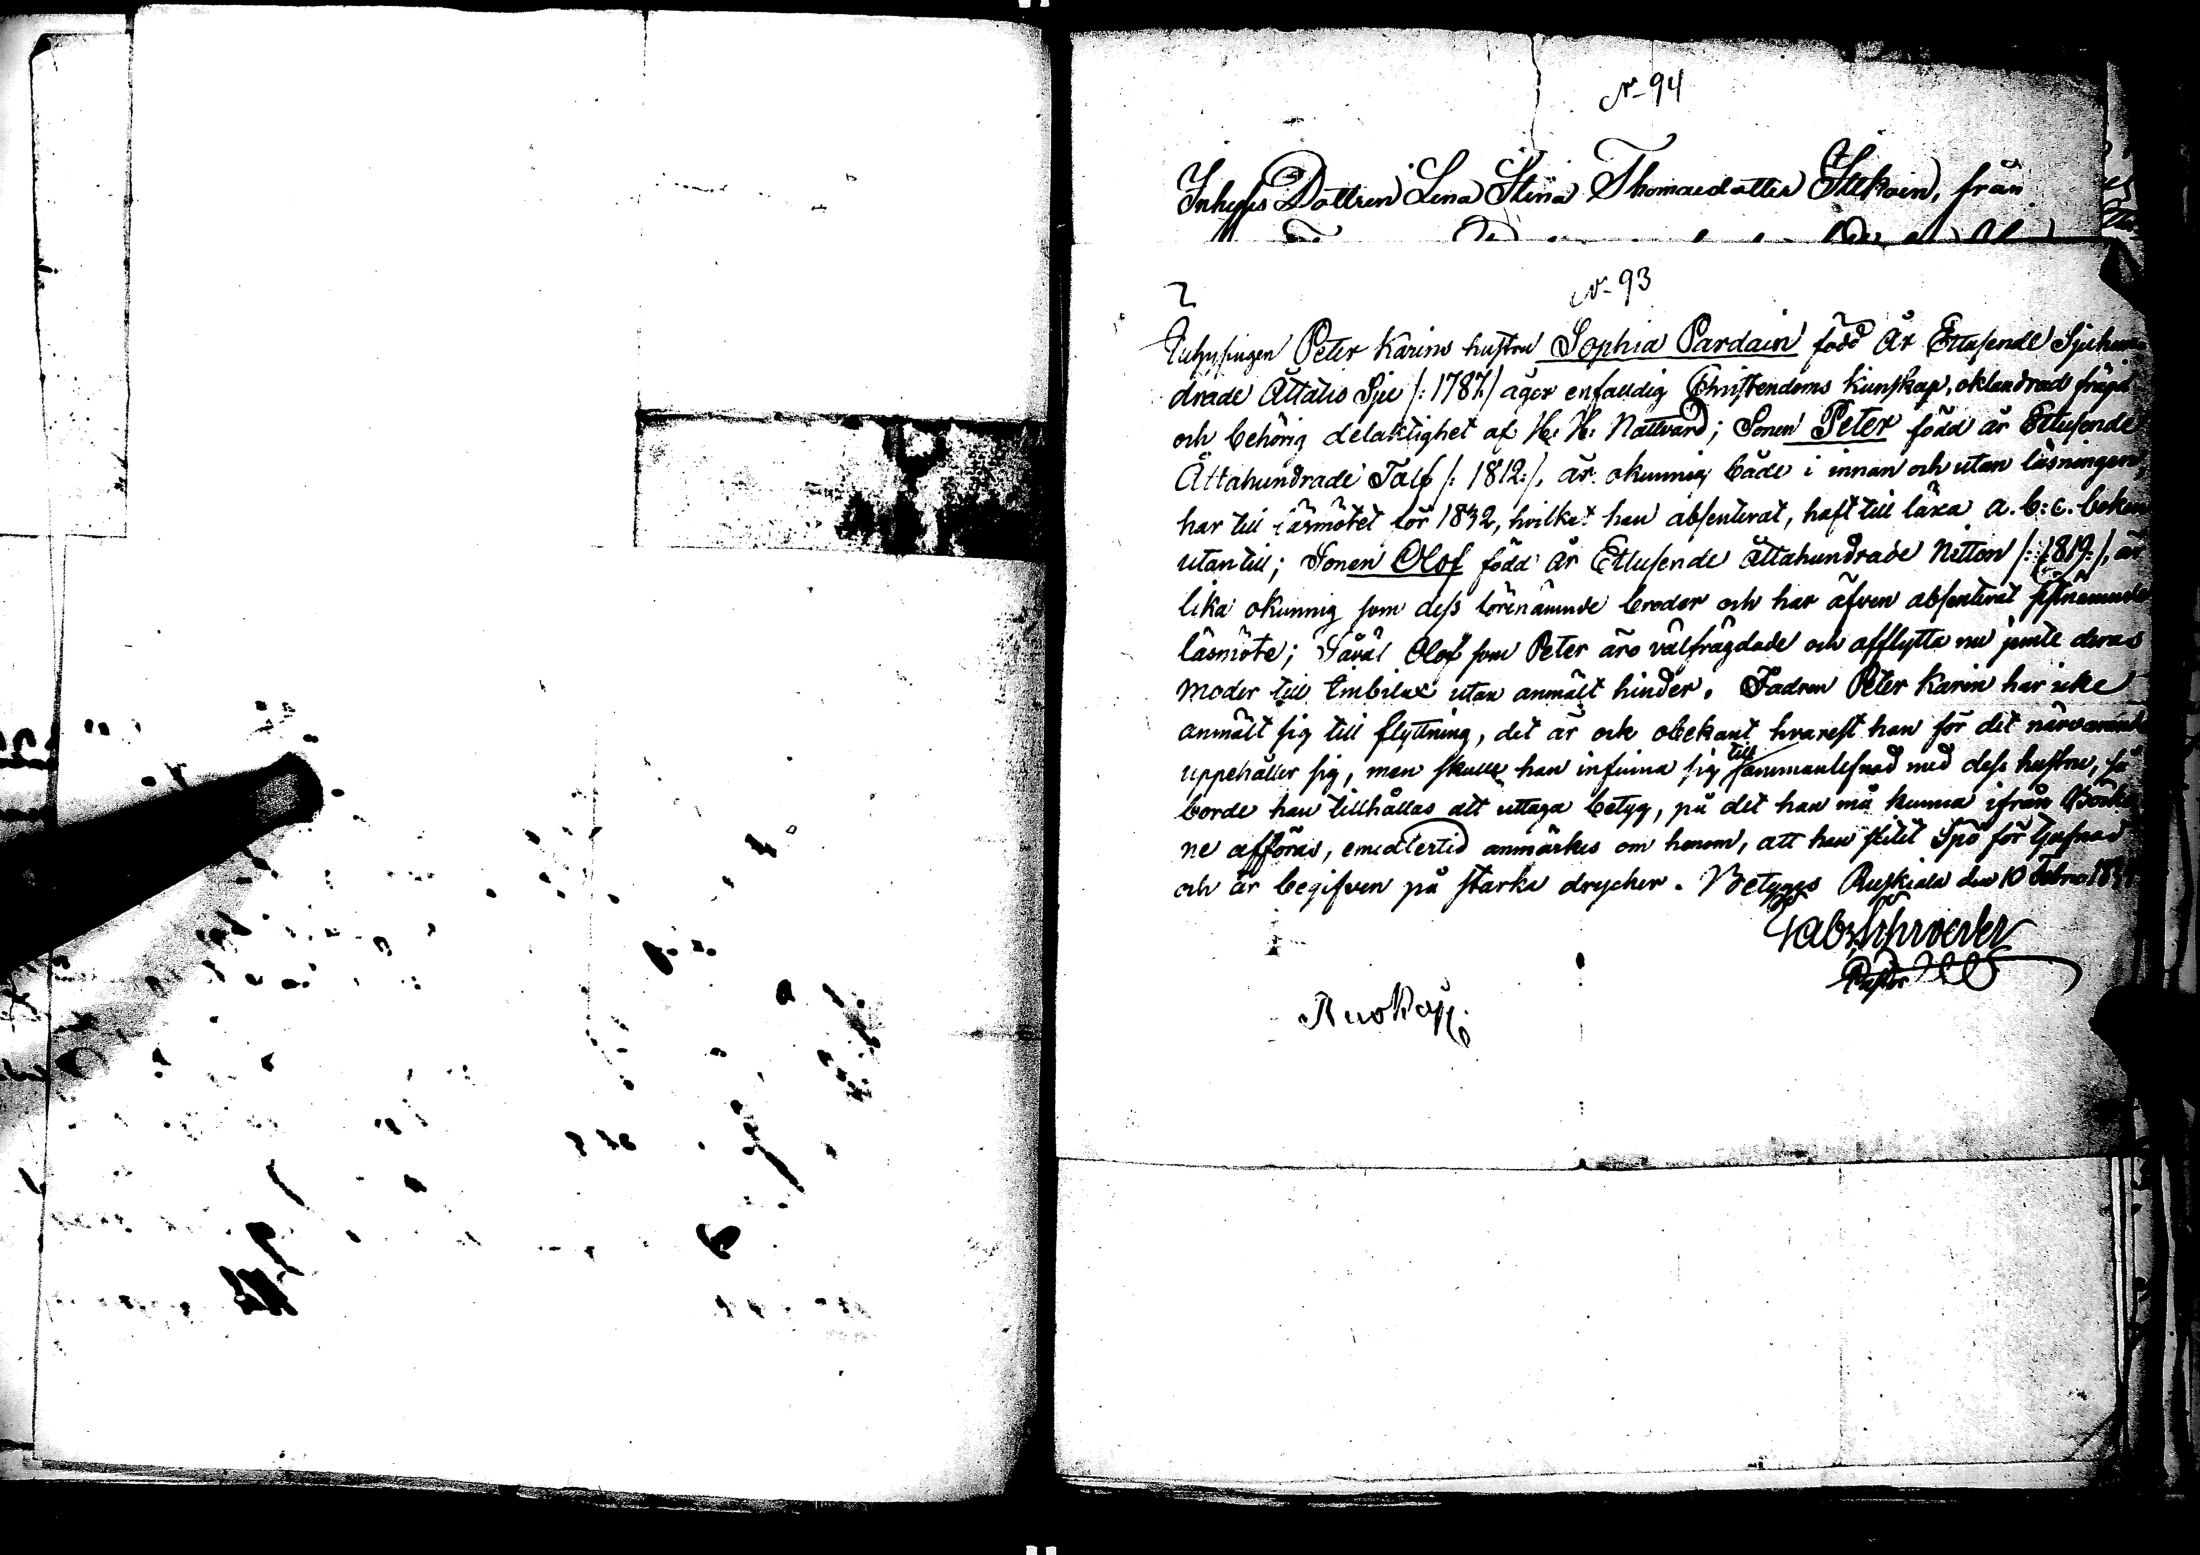 N 94
Inhyses Dottren Lena Stina Thomaedotter Ilkoin, från
N 93
Inhysingen Peter Karins hustru Sophia Pardain född År Ettusende Sjuhun
drade Åttatio Sju /: 1787:/ äger enfaldig Christendoms kunskap, oklandrad frägd
och behörig delaktighet af H: H: Nattvard; Sonen Peter född år Ettusende
Åttahundrade Tolf /: 1812:/, är okunnig både i innan och utan läsningen,
har till läsmötet för 1832, hvilket han absenterat, haft till läxa a. b: c. boken
utantill; Sonen Olof född År Ettusende åttahundrade Nitton /: 1819:/, är
lika okunnig som dess förenämnde broder och har äfven absenterat sistnämnde
läsmöte; Såväl Olof som Peter äro välfrägdade och afflytta nu jemte deras
Moder till Imbilax utan anmält hinder. Fadren Peter Karin har icke
anmält sig till flyttning, det är ock obekant hvarest han för det närvarande
uppehåller sig, men skulle han infinna sig till sammanlefnad med dess hustru, så
borde han tillhållas att uttaga betyg, på det han må kunna ifrån Böcker
ne afföras, emedlertid anmärkes om honom, att han slitit Spö för tjufnad
och är begifven på starka drycker. Betygas Ruskiala den 10 Febru
Schroeder
Pastor